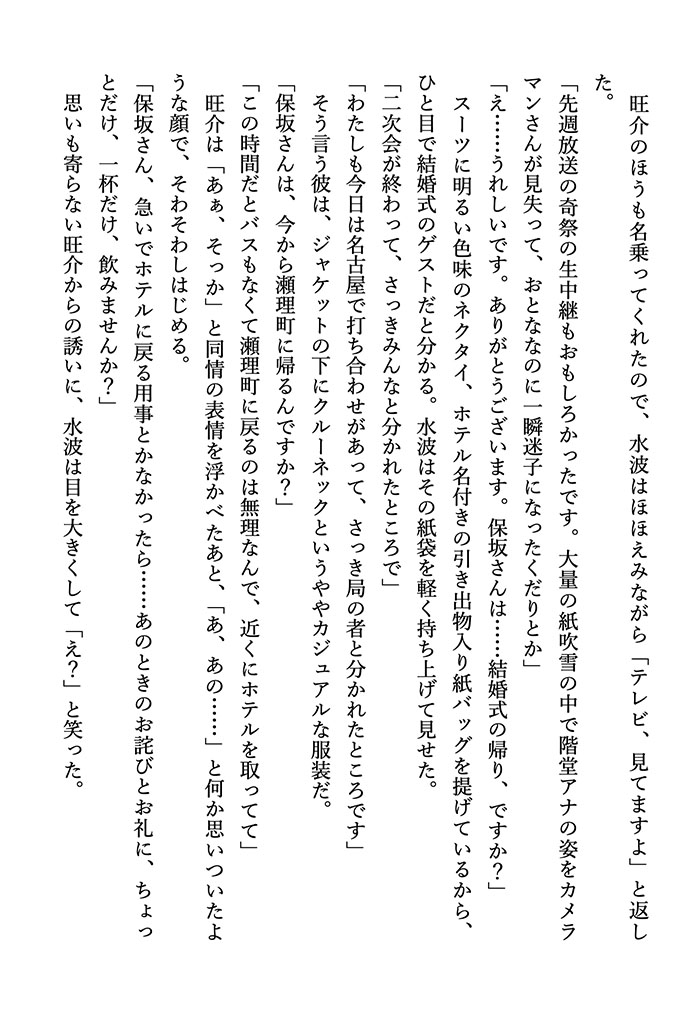 旺介のほうも名乗ってくれたので、水波はほほえみながら「テレビ、見てますよ」と返し
た。
「先週放送の奇祭の生中継もおもしろかったです。大量の紙吹雪の中で階堂アナの姿をカメラ
マンさんが見失って、おとななのに一瞬迷子になったくだりとか」
「え……うれしいです。ありがとうございます。保坂さんは……結婚式の帰り、ですか？」
　スーツに明るい色味のネクタイ、ホテル名付きの引き出物入り紙バッグを提げているから、
ひと目で結婚式のゲストだと分かる。水波はその紙袋を軽く持ち上げて見せた。
「二次会が終わって、さっきみんなと分かれたところで」
「わたしも今日は名古屋で打ち合わせがあって、さっき局の者と分かれたところです」
　そう言う彼は、ジャケットの下にクルーネックというややカジュアルな服装だ。
「保坂さんは、今から瀬理町に帰るんですか？」
「この時間だとバスもなくて瀬理町に戻るのは無理なんで、近くにホテルを取ってて」
　旺介は「あぁ、そっか」と同情の表情を浮かべたあと、「あ、あの……」と何か思いついたよ
うな顔で、そわそわしはじめる。
「保坂さん、急いでホテルに戻る用事とかなかったら……あのときのお詫びとお礼に、ちょっ
とだけ、一杯だけ、飲みませんか？」
　思いも寄らない旺介からの誘いに、水波は目を大きくして「え？」と笑った。